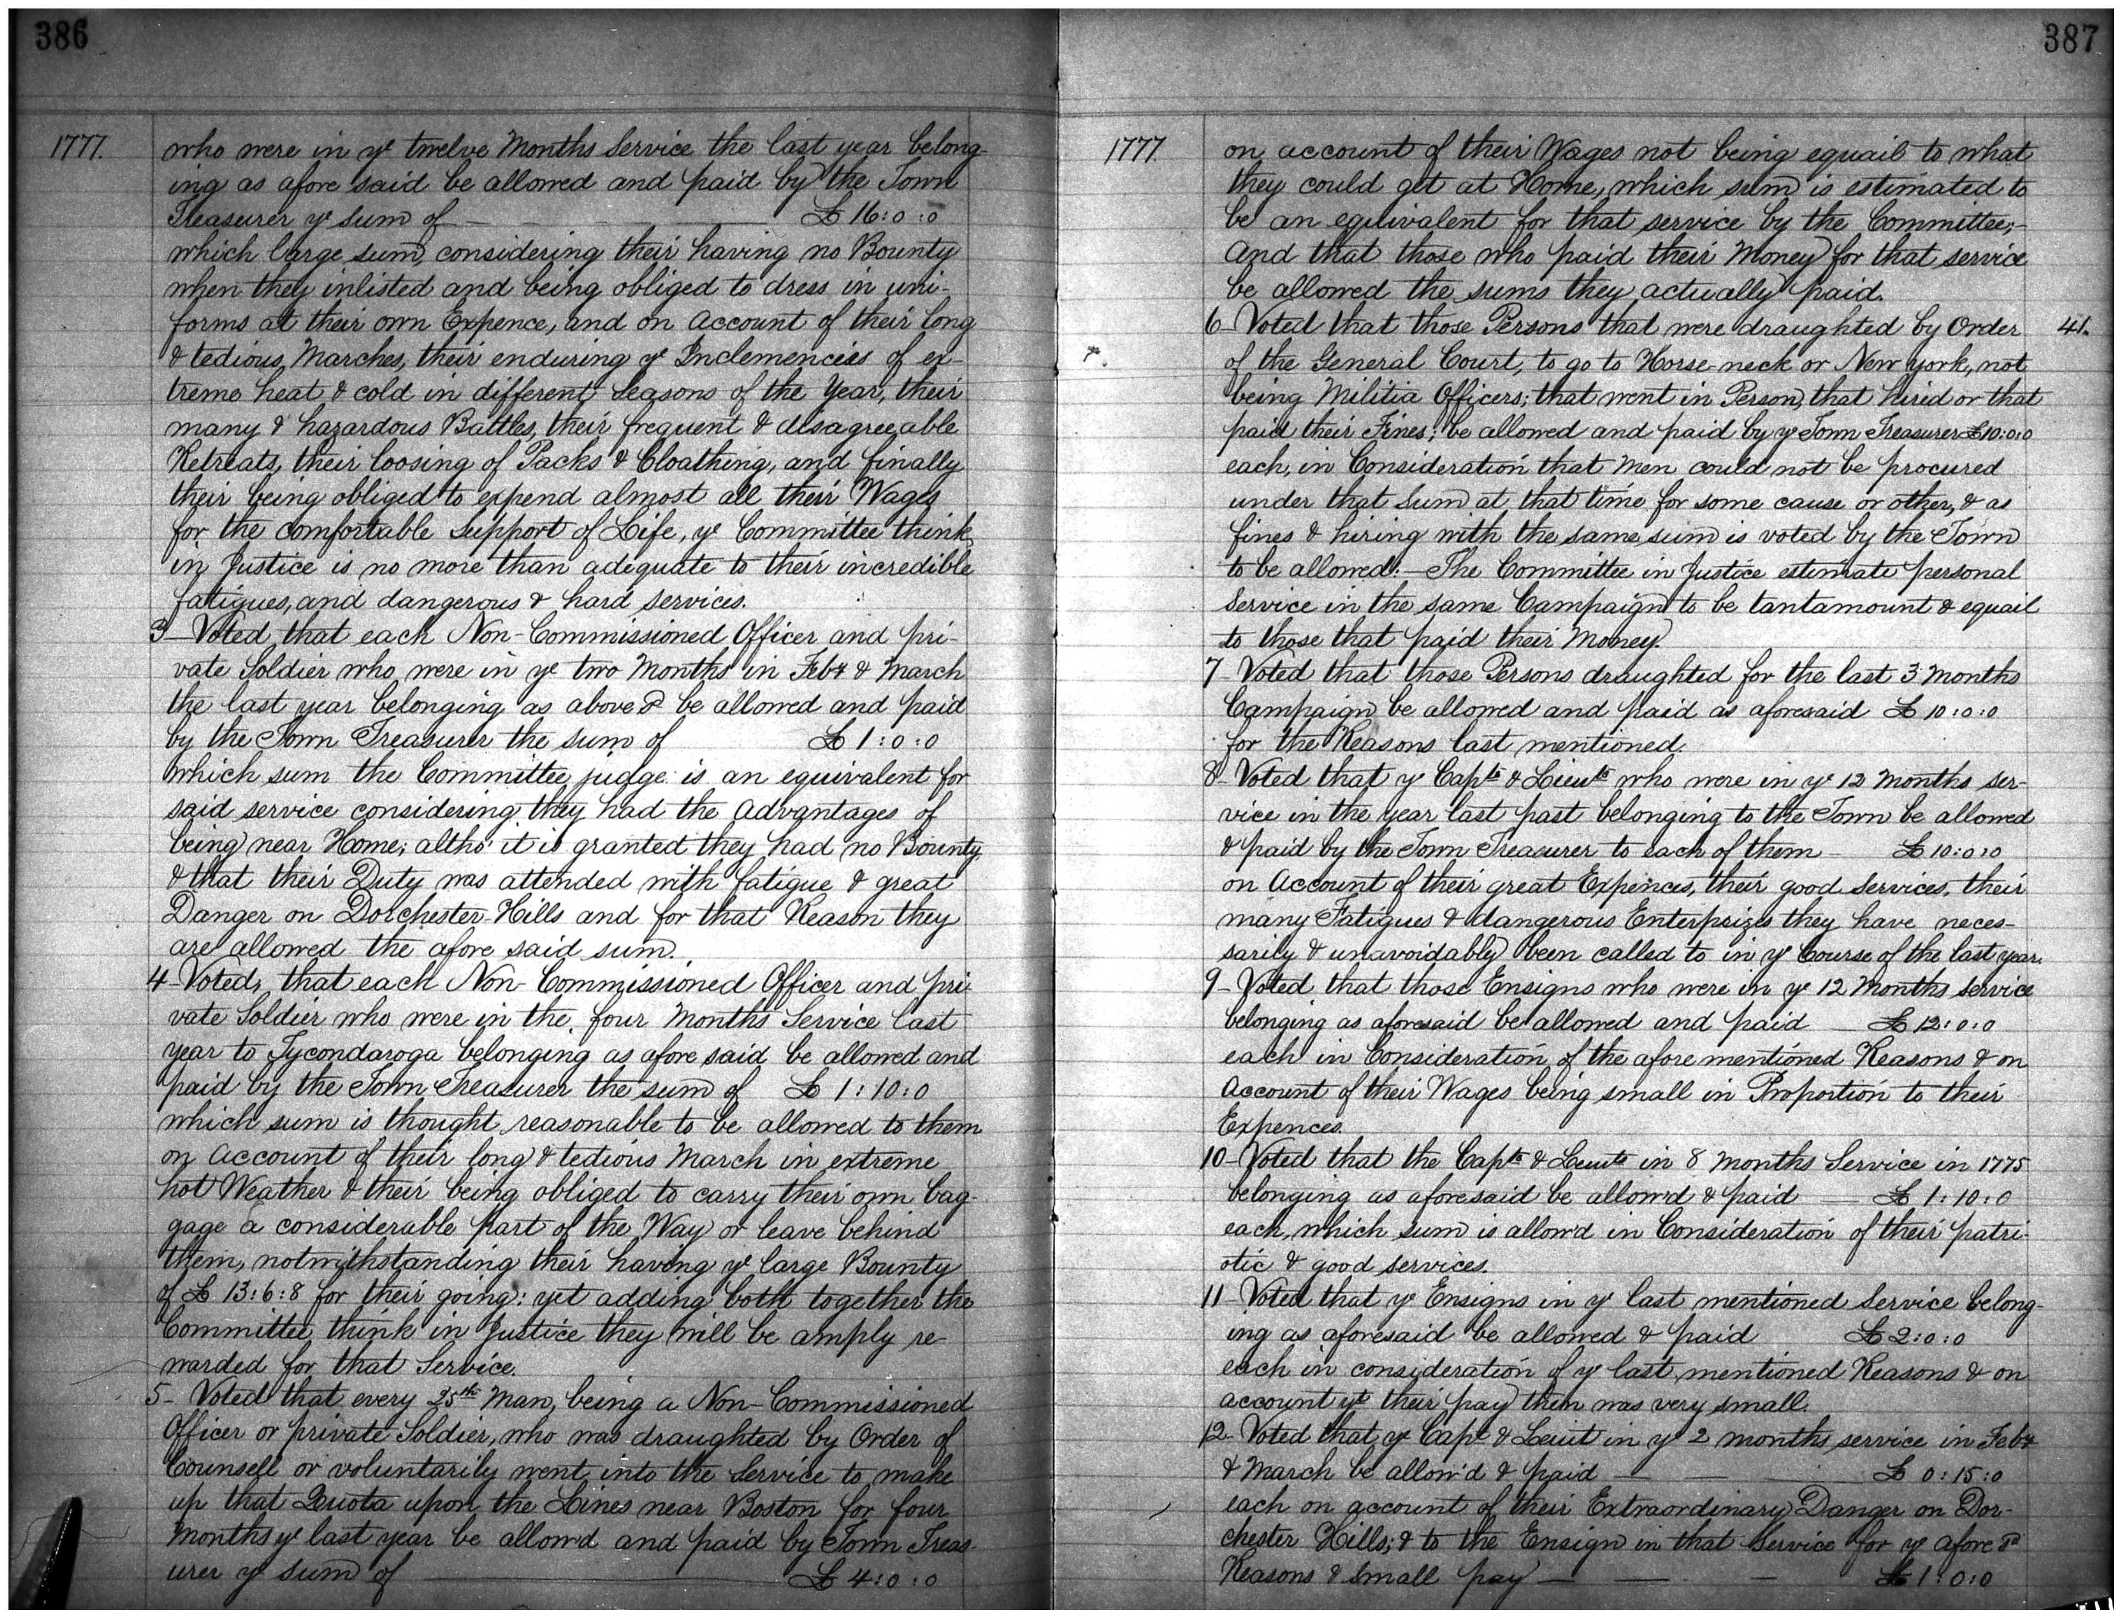 386
1777.
who were in ye twelve Months Service the last year belong-
ing as afore said be allowed and paid by the Town
Treasurer ye sum of £ 16:0:0
which large sum, considering their having no Bounty
when they inlisted and being obliged to dress in uni-
forms at their own Expence, and on account of their long
& tedious Marches, their enduring ye Inclemencies of ex-
treme heat & cold in different Seasons of the Year, their
many & hazardous Battles, their frequent & disagreeable
Retreats, their loosing of Packs & Cloathing, and finally
their being obliged to expend almost all their Wages
for the comfortable support of Life, ye Committee think
in Justice is no more than adequate to their incredible
fatigues, and dangerous & hard services.
3- Voted, that each Non-Commissioned Officer and pri-
vate Soldier who were in ye two Months in Feby & March
the last year belonging as above sd be allowed and paid
by the Town Treasurer the sum of £ 1:0:0
which sum the Committee judge is an equivalent for
said service considering they had the Advantages of
being near Home; altho' it is granted they had no Bounty
& that their Duty was attended with fatigue & great
Danger on Dorchester-Hills and for that Reason they
are allowed the afore said sum.
4- Voted, that each Non-Commissioned Officer and pri-
vate Soldier who were in the four Months Service last
year to Tycondaroga belonging as afore said be allowed and
paid by the Town Treasurer the sum of £ 1:10:0
which sum is thought reasonable to be allowed to them
on account of their long & tedious March in extreme
hot Weather & their being obliged to carry their own bag-
gage a considerable part of the Way or leave behind
them, notwithstanding their having ye large Bounty
of £ 13:6:8 for their going: yet adding both together the
Committee think in Justice they will be amply re-
warded for that Service.
5- Voted that every 25th Man, being a Non-Commissioned
Officer or private Soldier, who was draughted by Order of
Counsell or voluntarily went into the Service to make
up that Quota upon the Lines near Boston for four
Months ye last year be allowd and paid by Town Treas-
urer ye sum of £ 4:0:0
387
1777.
on account of their Wages not being equail to what
they could get at Home, which sum is estimated to
be an equivalent for that service by the Committee;-
And that those who paid their Money for that service
be allowed the sums they actually paid.
6- Voted that those Persons that were draughted by Order 41.
of the General Court, to go to Horse-neck or New York, not
being Militia Officers; that went in Person, that hired or that
paid their Fines; be allowed and paid by ye Town Treasurer £10:0:0
each, in Consideration that Men could not be procured
under that Sum at that time for some cause or other, & as
fines & hiring with the same sum is voted by the Town
to be allowed:- The Committee in Justice estimate personal
Service in the same Campaign to be tantamount & equail
to those that paid their Money.
7- Voted that those Persons draughted for the last 3 Months
Campaign be allowed and paid as aforesaid £ 10:0:0
for the Reasons last mentioned.
8- Voted that ye Capts & Lieuts who were in ye 12 Months ser-
vice in the year last past belonging to the Town be allowed
& paid by the Town Treasurer to each of them £ 10:0:0
on Account of their great Expences, their good Services, their
many Fatigues & dangerous Enterprizes they have neces-
sarily & unavoidably been called to in ye Course of the last year.
9- Voted that those Ensigns who were in ye 12 Months service
belonging as aforesaid be allowed and paid £ 12:0:0
each in Consideration of the afore mentioned Reasons & on
Account of their Wages being small in Proportion to their
Expences.
10- Voted that the Capts & Leiuts in 8 months Service in 1775
belonging as aforesaid be allow'd & paid £ 1:10:0
each, which sum is allow'd in Consideration of their patri-
otic & good services.
11- Voted that ye Ensigns in ye last mentioned service belong-
ing as aforesaid be allowed & paid £ 2:0:0
each in consideration of ye last mentioned Reasons & on
account yt their pay then was very small.
12- Voted that ye Capt & Leiut in ye 2 months service in Feby
& March be allow'd & paid £ 0:15:0
each on account of their Extraordinary Danger on Dor-
chester Hills; & to the Ensign in that Service for ye afore sd
Reasons & small pay £ 1:0:0